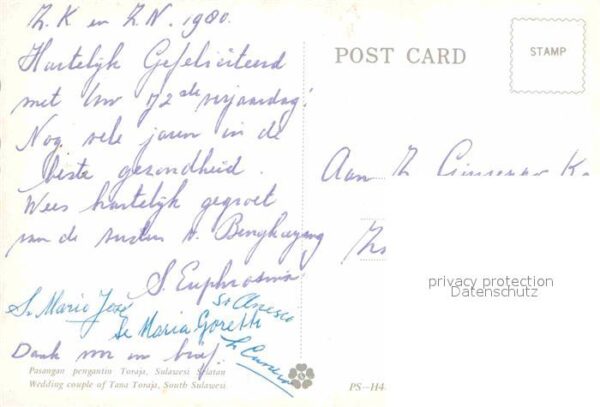 Z.K en Z.N. 1980.
Hartelijk Gefeliciteerd
met Uw 72ste verjaardag!
Nog vele jaren in de
beste gezondheid.
Wees hartelijk gegroet
van de zusters v. Bengkayang
S. Euphrasia.
Sr Mario José
Sr Maria Goretti
Dank voor uw brief.
POST CARD
STAMP
Aan Z
privacy protection
Datenschutz
Pasangan pengantin Toraja, Sulawesi Selatan
Wedding couple of Tana Toraja, South Sulawesi
PS-H4